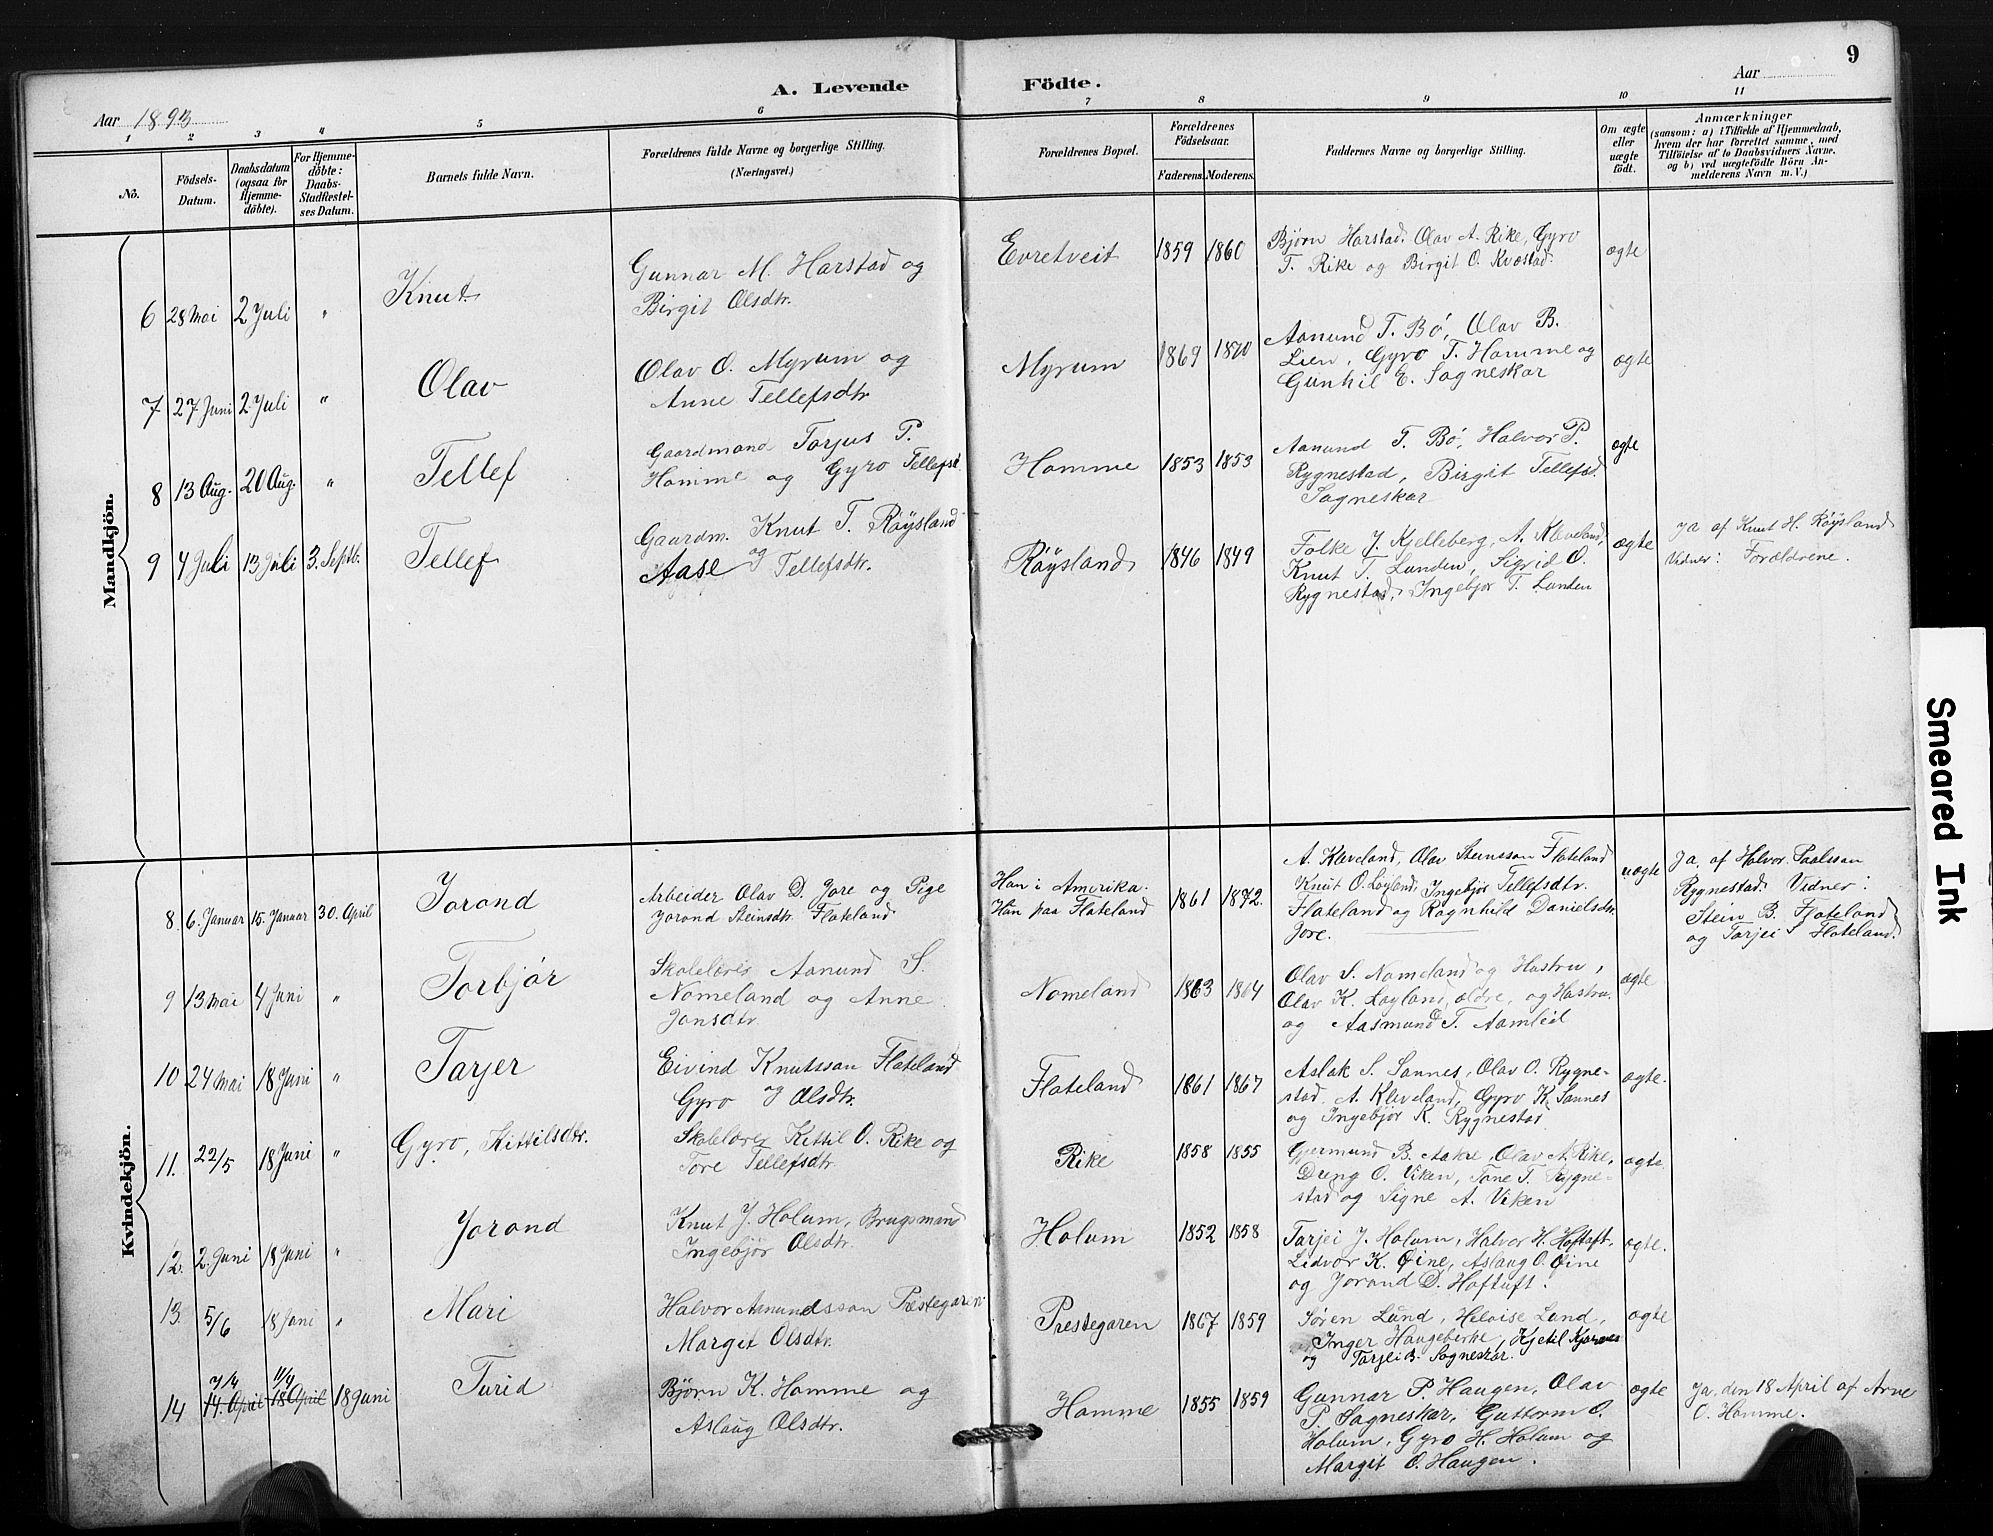 9
A. Levende Födte.
Aar 1893
Aar
1 2 3 4 5 6 7 8 9 10 11
No.
Födsels-Datum.
Daabsdatum (ogsaa for Hjemme-döbte).
For Hjemme-döbte: Daabs-Stadfæstel-ses Datum.
Barnets fulde Navn.
Forældrenes fulde Navne og borgerlige Stilling. (Næringsvei.)
Forældrenes Bopæl.
Forældrenes Födselsaar.
Faderens. Moderens.
Faddernes Navne og borgerlige Stilling.
Om ægte eller uægte födt.
Anmærkninger
(saasom: a) i Tilfælde af Hjemmedaab,
hvem der har forrettet samme, med
Tilföielse af to Daabsvidners Navne,
og b) ved uægtefödte Börn An-
melderens Navn m. V.)
Mandkjön.
6 28 Mai 2 Juli " Knut
Gunnar M. Harstad og
Birgit Olsdtr.
Evretveit 1859 1860
Bjørn Harstad. Olav A. Rike, Gyro
T. Rike og Birgit O. Kvæstad.
ægte
7 27 Juni 2. Juli " Olav
Olav O. Myrum og
Anne Tellefsdtr
Myrum 1869 1870
Aanund T. Bø, Olav B.
Lien, Gyro T. Homme og
Gunhil E. Sagneskar
ægte
8 13 Aug. 20 Aug. " Tellef
Gaardmand Torjus P.
Homme og Gyro Tellefsd.
Homme 1853 1853
Aanund T. Bø, Halvor P.
Rygnestad, Birgit Tellefsd.
Sagneskar
ægte
9 4 Juli 13 Juli 3. Septb. Tellef
Gaardm. Knut T. Røysland
og
Aase Tellefsdtr.
Røysland 1846 1849
Folke J. Kjelleberg, A. Kleveland,
Knut T. Lunden, Sigrid O.
Rygnestad, Ingebjør T. Lunden
ægte
Ja af Knut H. Røysland
Vidner: Forældrene.
Kvindekjön.
8. 6. Januar 15. Januar 30. April Jorond
Arbeider Olav D. Jore og Pige
Jorond Steinsdtr. Flateland.
Han i Amerika.
Hun paa Flateland
1861 1872.
A. Kleveland, Olav Steinsson Flateland
Knut O. Løyland, Ingebjør Tellefsdtr.
Flateland og Ragnhild Danielsdtr.
Jore.
uægte
Ja, af Halvor Paalsson
Rygnestad. Vidner:
Stein B. Flateland
og Tarjei S Flateland.
9 13 Mai 4 Juni " Torbjør
Skolelærer Aanund S.
Nomeland og Anne
Jonsdtr.
Nomeland 1863 1864
Olav S. Nomeland og Hustru,
Olav K. Løyland, ældre, og Hustru
og Aasmund T. Aamlid
ægte
10 24 Mai 18 Juni " Tarjer
Eivind Knutsson Flateland
Gyro og Olsdtr.
Flateland 1861 1867
Aslak S. Sannes, Olav O. Rygne-
stad. A. Kleveland, Gyro K. Sannes
og Ingebjør K. Rygnestad
ægte.
11. 22/5 18 Juni " Gyro, Kittilsdtr.
Skolelærer Kittil O. Rike og
Tore Tellefsdtr.
Rike 1858 1855
Gjermund B. Aakre, Olav A. Rike,
Dreng O. Viken, Tone T. Rygne-
stad og Signe A. Viken
ægte
12. 2. Juni 18 Juni " Jorond
Knut J. Holum, Brugsmand
Ingebjør Olsdtr.
Holum 1852 1858
Tarjei J. Holum, Halvor H. Hoftuft.
Lidvor K. Øine, Aslaug O. Øine
og Jorond D. Hoftuft.
ægte.
13. 5/6 18 Juni " Mari
Halvor Asmundsson Prestegaren
Margit Olsdtr.
Prestegaren 1867 1859
Søren Lund, Heloise Lund,
Inger Haugeberke, Kjetil
og Tarjei B. Sagneskar.
ægte
7/4 11/4
14 14. April 18 April 18 Juni Turid
Bjørn K. Homme og
Aslaug Olsdtr.
Homme 1855 1859
Gunnar P. Haugen, Olav
P. Sagneskar, Guttorm O.
Holum, Gyro H. Holum og
Margit O. Haugen.
ægte
Ja, den 18 April af Arne
O. Homme.
Smeared Ink